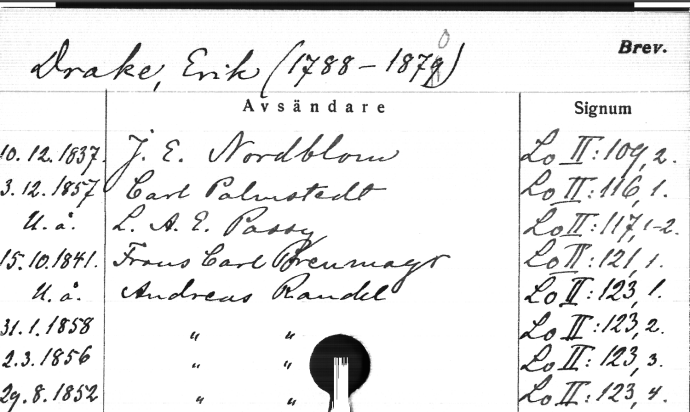 Brev.
Drake, Erik (1788-1870)
Avsändare Signum
10.12.1837. J. E. Nordblom Lo II:109, 2.
3.12.1857 Carl Palmstedt Lo II:116, 1.
U.å. L. A. E. Passy Lo II:117, 1-2.
15.10.1841. Frans Carl Preumayr Lo II:121, 1.
U.å. Andreas Randel Lo II:123, 1.
31.1.1858 " " Lo II:123, 2.
2.3.1856 " " Lo II:123, 3.
29.8.1852 " " Lo II:123, 4.